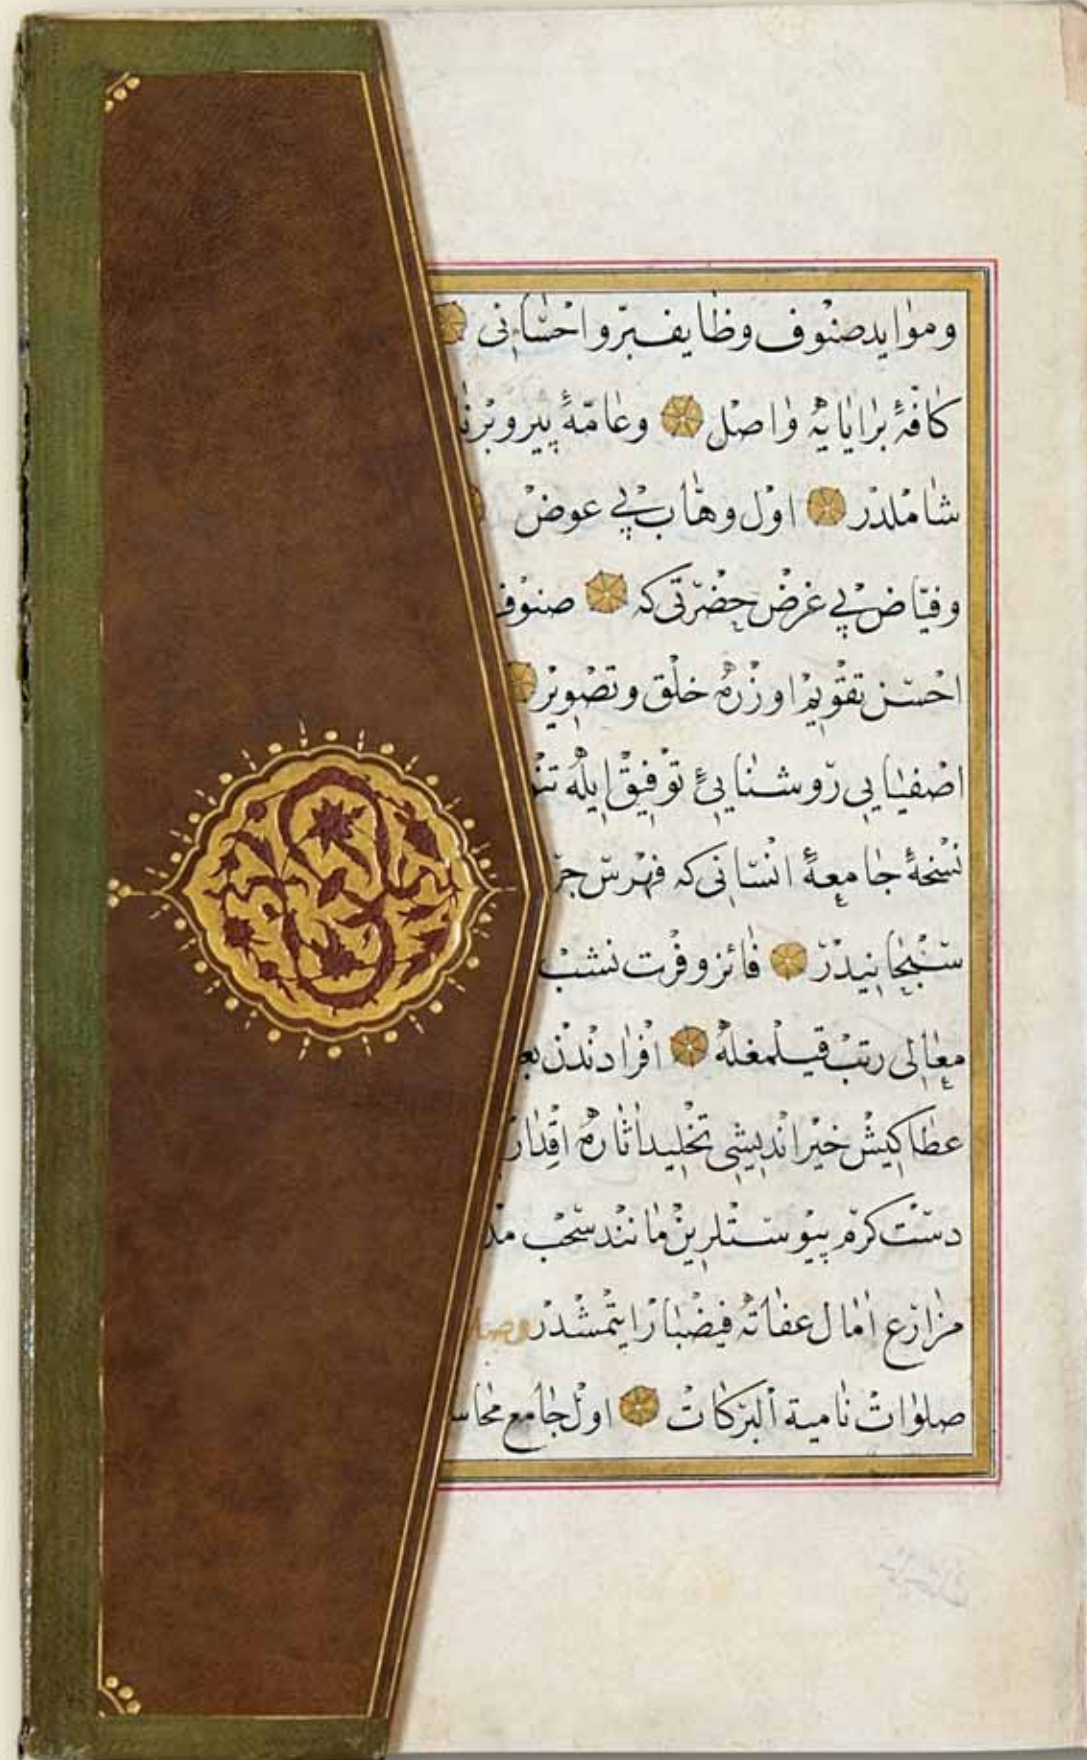 وموايد صنوف وظايف برّ و احساني
كافّۀ برايايه واصل وعامّۀ پير و برنا
شاملدر اول وهّاب بی عوض
وفيّاض بی غرض حضرتی كه صنوف
احسن تقويم اوزره خلق و تصوير
اصفيايی روشنایئ توفيق ايله
نسخۀ جامعۀ انسانی كه فهرس
سبحانيدر فائز وفرت نشب
معالی رتب قيلمغله افرادندن
عطا كيش خير انديشی تخليد اثاره
دست كرم پيوستلرين مانند سحب
مزارع امال عفاته فيضبار ايتمشدر
صلوات نامية البركات اول جامع